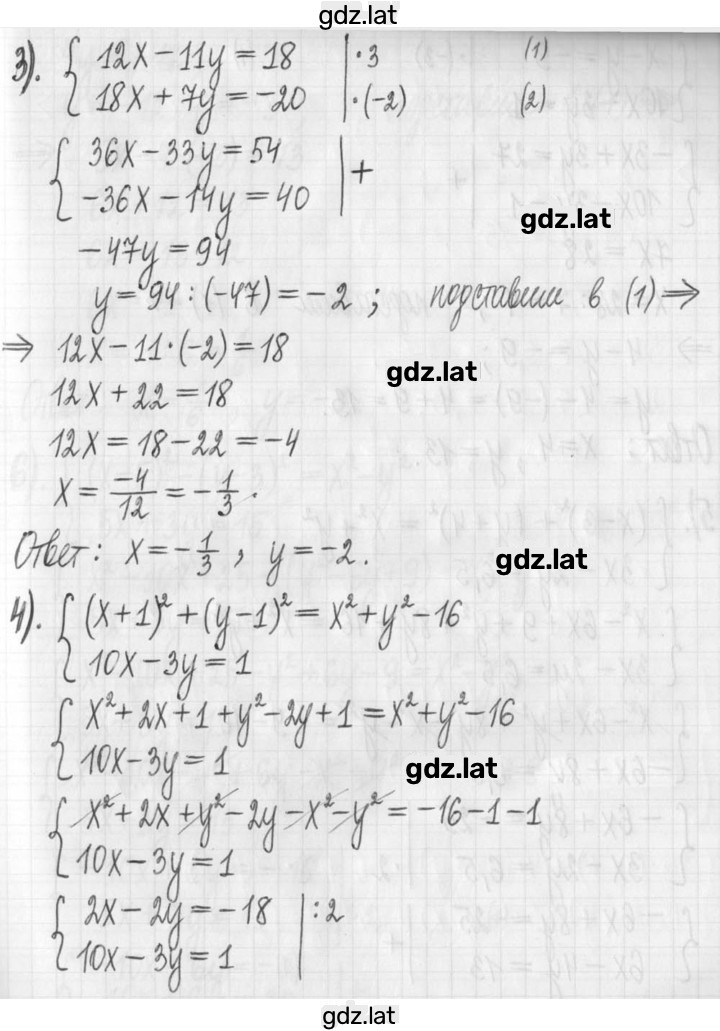 gdz.lat
3). { 12x − 11y = 18 | ·3 (1)
18x + 7y = −20 | ·(−2) (2)
{ 36x − 33y = 54 | +
−36x − 14y = 40
gdz.lat
−47y = 94
y = 94 : (−47) = −2 ; подставим в (1) ⇒
⇒ 12x − 11·(−2) = 18
gdz.lat
12x + 22 = 18
12x = 18 − 22 = −4
x = −4/12 = −1/3 .
Ответ: x = −1/3 , y = −2 .
gdz.lat
4). { (x+1)² + (y−1)² = x² + y² − 16
10x − 3y = 1
{ x² + 2x + 1 + y² − 2y + 1 = x² + y² − 16
10x − 3y = 1
gdz.lat
{ x² + 2x + y² − 2y − x² − y² = −16 − 1 − 1
10x − 3y = 1
{ 2x − 2y = −18 | :2
10x − 3y = 1
gdz.lat